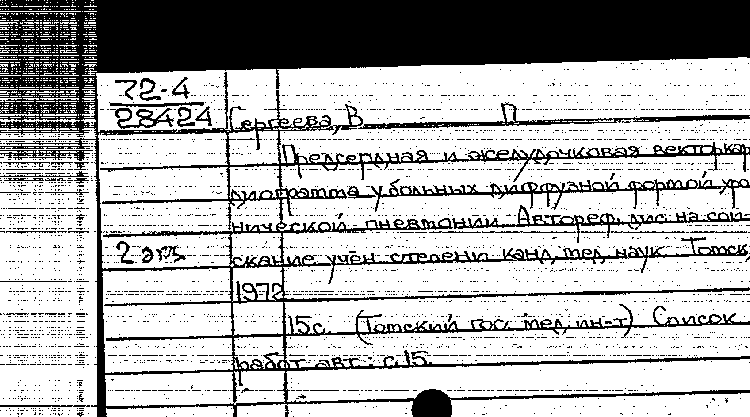 72-4
28424
Сергеева, В П
Предсердная и желудочковая векторкар
диограмма у больных диффузной формой хро
нической пневмонии. Автореф. дис. на сои
2 экз.
скание учен. степени канд. мед. наук. Томск,
1972
15 с. (Томский гос. мед. ин-т). Список
работ авт.: с. 15.